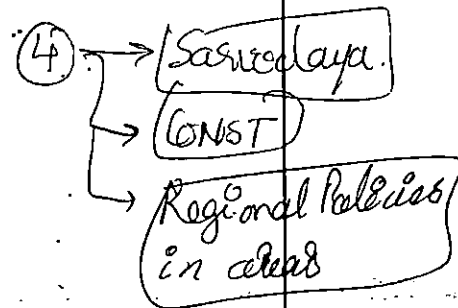 4
Sarvodaya.
CONST
Regional Policies
in areas